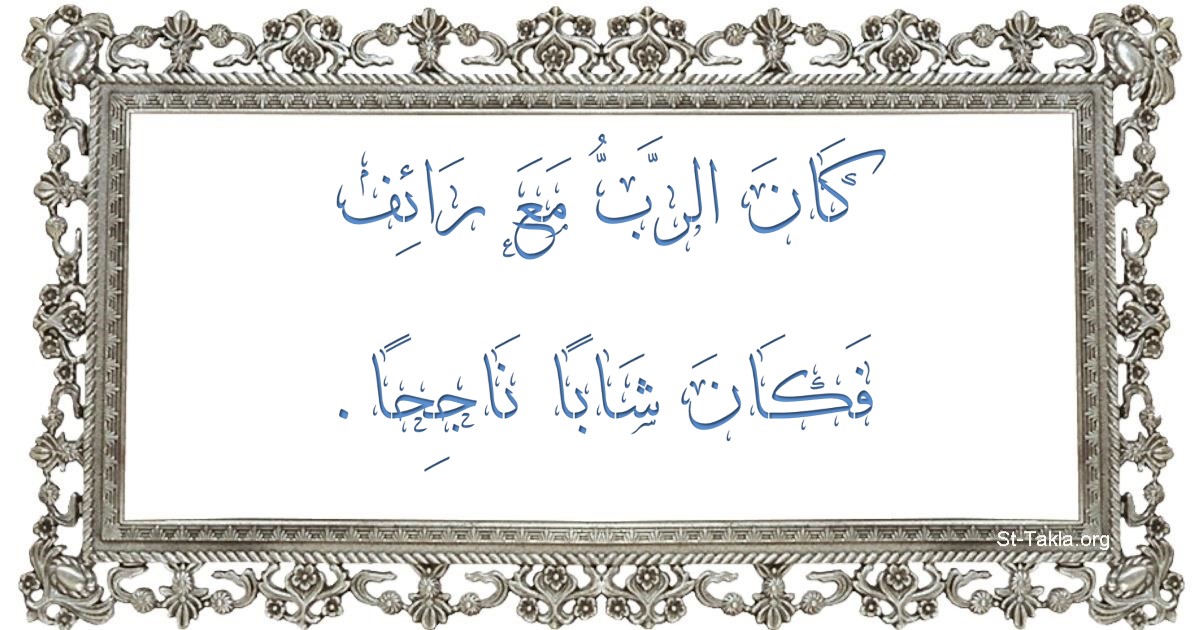 كَانَ الرَّبُّ مَعَ رَائِف
فَكَانَ شَابًا نَاجِحًا .
St-Takla.org